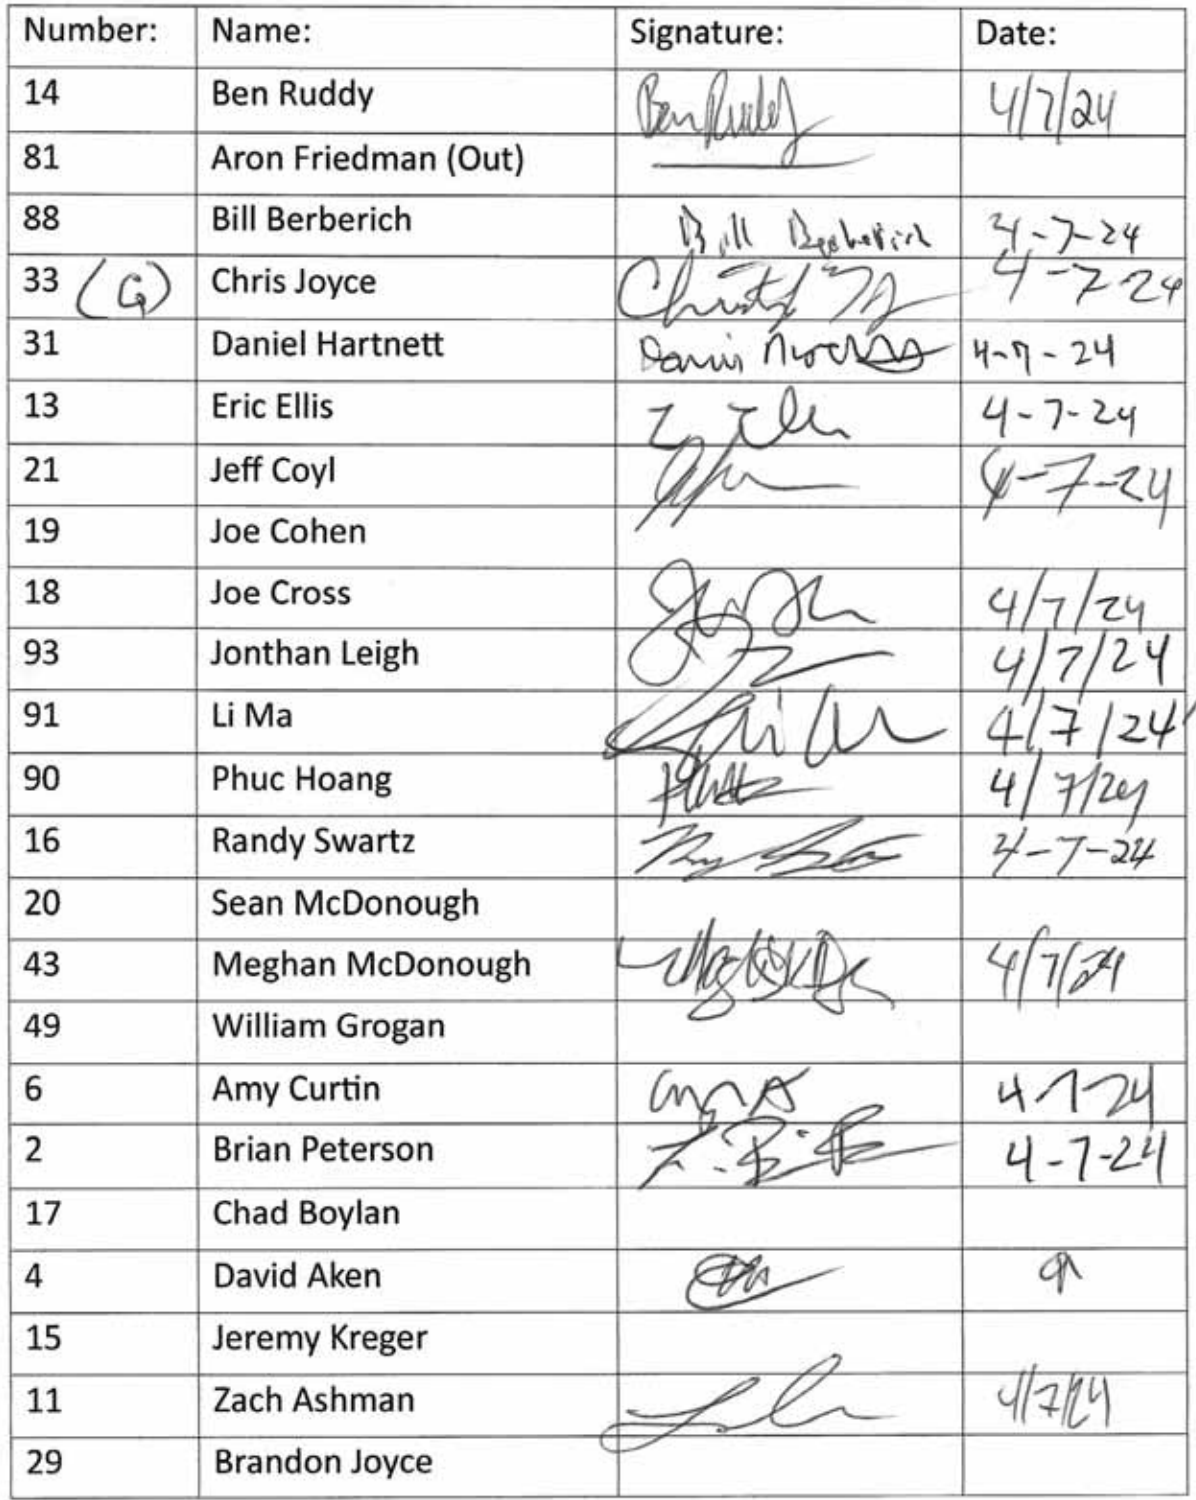 Number: Name: Signature: Date:
14 Ben Ruddy Ben Ruddy 4/7/24
81 Aron Friedman (Out)
88 Bill Berberich Bill Berberich 4-7-24
33 (G) Chris Joyce 4-7-24
31 Daniel Hartnett 4-7-24
13 Eric Ellis 4-7-24
21 Jeff Coyl 4-7-24
19 Joe Cohen
18 Joe Cross 4/7/24
93 Jonthan Leigh 4/7/24
91 Li Ma 4/7/24
90 Phuc Hoang 4/7/24
16 Randy Swartz 4-7-24
20 Sean McDonough
43 Meghan McDonough 4/7/24
49 William Grogan
6 Amy Curtin 4-7-24
2 Brian Peterson 4-7-24
17 Chad Boylan
4 David Aken
15 Jeremy Kreger
11 Zach Ashman 4/7/24
29 Brandon Joyce